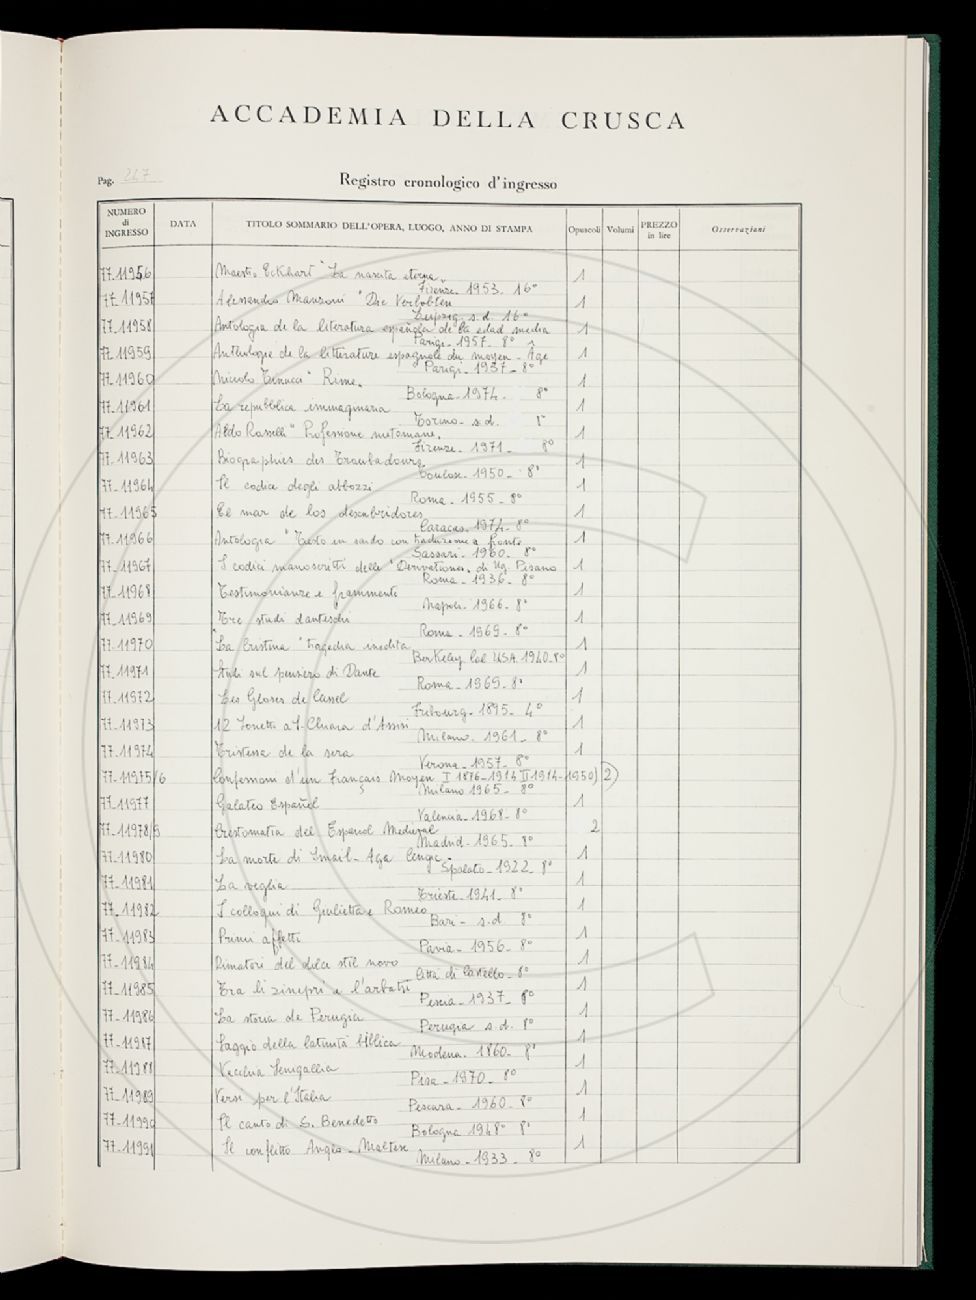 ACCADEMIA DELLA CRUSCA
Pag. 247
Registro cronologico d'ingresso
NUMERO di INGRESSO DATA TITOLO SOMMARIO DELL'OPERA, LUOGO, ANNO DI STAMPA Opuscoli Volumi PREZZO in lire Osservazioni
77-11956 Maestro Eckhart "La nascita eterna„ 1
Firenze. 1953. 16°
77-11957 Alessandro Manzoni "Die Verlobten 1
Leipzig s.d. 16°
77-11958 Antologia de la literatura española de la edad media 1
Parigi. 1957. 8°
77-11959 Anthologie de la littérature espagnole du moyen-Age 1
Parigi. 1937- 8°
77-11960 Niccolò Tinucci "Rime„ 1
Bologna. 1974. 8°
77-11961 La repubblica immaginaria 1
Torino- s.d.
77-11962 Aldo Rosselli "Professione mitomane„ 1
Firenze. 1971- 8°
77-11963 Biographies des Troubadours 1
Toulose. 1950- 8°
77-11964 Il codice degli abbozzi 1
Roma- 1955- 8°
77-11965 El mar de los descubridores 1
Caracas. 1974- 8°
77-11966 Antologia "Testo in sardo con traduzione a fronte 1
Sassari- 1960- 8°
77-11967 I codici manoscritti delle "Derivationes„ di Ug. Pisano 1
Roma- 1936- 8°
77-11968 Testimonianze e frammenti 1
Napoli. 1966- 8°
77-11969 Tre studi danteschi 1
Roma- 1969- 8°
77-11970 "La Cristina" tragedia inedita 1
Berkeley Cal USA. 1940-8°
77-11971 Studi sul pensiero di Dante 1
Roma- 1969- 8°
77-11972 Les Gloses de Cassel 1
Fribourg- 1895- 4°
77-11973 12 Sonetti a S. Chiara d'Assisi 1
Milano. 1961- 8°
77-11974 Tristessa de la sera 1
Verona- 1957- 8°
77-11975/6 Confessioni d'un Français Moyen I 1876-1914 II 1914-1950) 2)
Milano 1965- 8°
77-11977 Galateo Español 1
Valencia- 1968- 8°
77-11978/9 Crestomatia del Español Medieval 2
Madrid- 1965- 8°
77-11980 La morte di Smail-Aga Cengic- 1
Spalato- 1922- 8°
77-11981 La veglia 1
Trieste- 1941- 8°
77-11982 I colloqui di Giulietta e Romeo 1
Bari- s.d. 8°
77-11983 Primi affetti 1
Pavia- 1956- 8°
77-11984 Rimatori del dolce stil novo 1
Città di Castello- 8°
77-11985 Tra li zinepri e l'arbatri 1
Pescia- 1937- 8°
77-11986 La storia de Perugia 1
Perugia s.d. 8°
77-11987 Saggio della latinità biblica 1
Modena. 1860- 8°
77-11988 Vecchia Senigallia 1
Pisa- 1970- 8°
77-11989 Versi per l'Italia 1
Pescara- 1960- 8°
77-11990 Il canto di S. Benedetto 1
Bologna 1948° 8°
77-11991 Il conflitto Anglo-Maltese 1
Milano- 1933- 8°